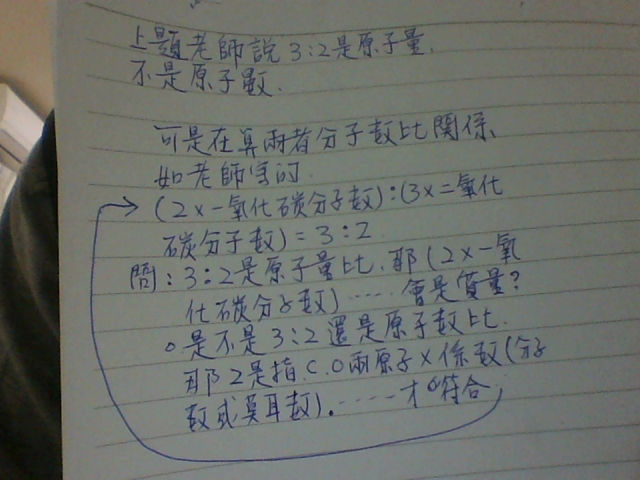 上題老師說3:2是原子量.
不是原子數.
可是在算兩者分子數比關係
如老師寫的.
(2×一氧化碳分子數):(3×二氧化
碳分子數)=3:2
問:3:2是原子量比.那(2×一氧
化碳分子數)……會是質量?
。是不是3:2還是原子數比.
那2是指C.O兩原子×係數(分子
數或莫耳數).……才符合.